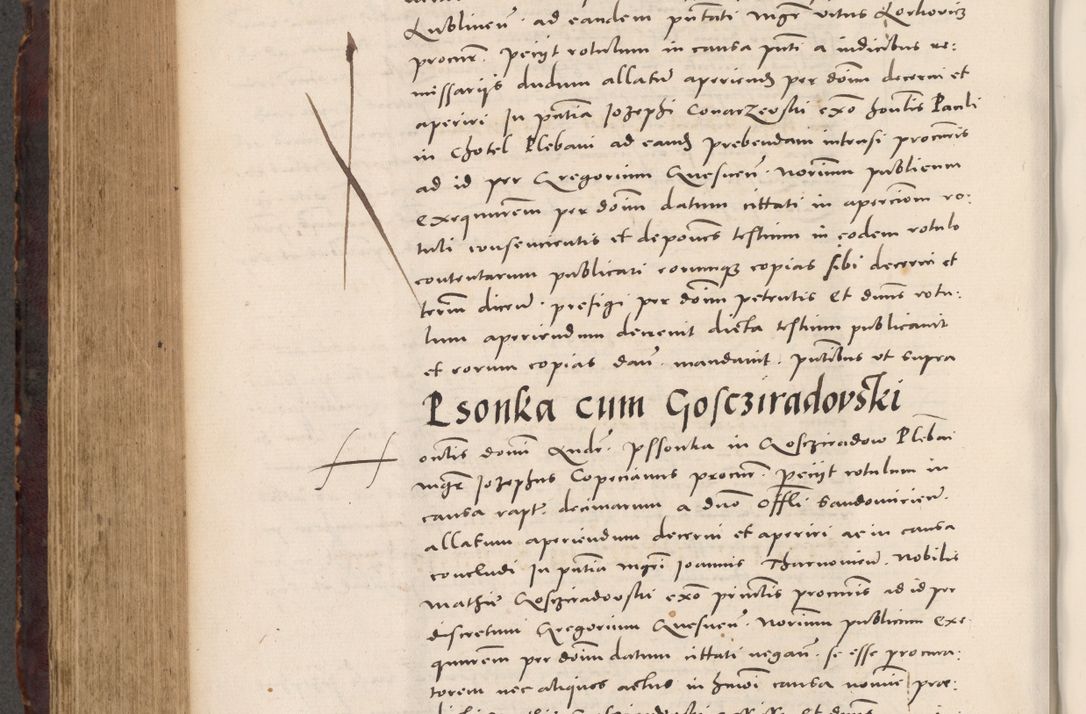 Lublineñ. ad eandem pñtati mgr̃ vitus Lochovicz
procur̃. periit rotulum in causa pñti a iudicibus re:
missarijs dudum allatum̃ aperiend̃ per dominum decerni et
aperiri In pñtia Jozephi Conarzewski exõ honlis Pauli
in Chotel Plebani ad eand̃ prebendam intrusi procuris
ad id per Gregorium Quesneñ. Norium publicum
Exequutrem per dominum datum cittati in aperciom ro:
tuli consencientis et depones testium in eodem rotulo
contentarum publicari earumq3 copias sibi decerni et
term̃ dicen̄. prefigi per dominum petentis Et dnus rotu:
lum aperiendum decrevit dicta testium publicavit
et eorum copias dañ. mandavit. pñtibus ut supra
Psonka cum Gosczіradovski
ontis domi Andr̃. Pssonka in Gosczіradow Plebani
mgr̃ Jozephus Copecianus procur̃. periit rotulum in
causa rapt̃. decimarum a dno Offli Sandomirien̄.
allatum aperiendum decerni et aperiri ac in causa
concludi In pñtia mgri Joannis Tharnovien̄. Nobilis
Mathiæ Gosczіradovski exõ princlis procuris ad id per
discretum Gregorium Quesneñ. Norium publicum Exe
quutrem per dominum datum cittati negañ. se esse procura:
torem nec aliquos actus in hmõi causa nomine prae: